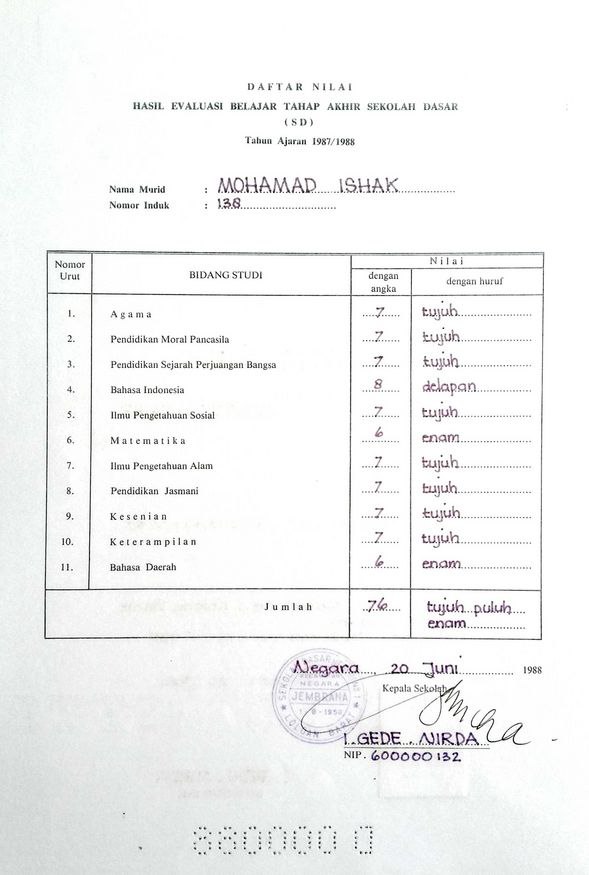 DAFTAR NILAI
HASIL EVALUASI BELAJAR TAHAP AKHIR SEKOLAH DASAR
(SD)
Tahun Ajaran 1987/1988
Nama Murid : MOHAMAD ISHAK
Nomor Induk : 138
Nomor Urut BIDANG STUDI Nilai
dengan angka dengan huruf
1. Agama 7 tujuh
2. Pendidikan Moral Pancasila 7 tujuh
3. Pendidikan Sejarah Perjuangan Bangsa 7 tujuh
4. Bahasa Indonesia 8 delapan
5. Ilmu Pengetahuan Sosial 7 tujuh
6. Matematika 6 enam
7. Ilmu Pengetahuan Alam 7 tujuh
8. Pendidikan Jasmani 7 tujuh
9. Kesenian 7 tujuh
10. Keterampilan 7 tujuh
11. Bahasa Daerah 6 enam
Jumlah 76 tujuh puluh
enam
Negara, 20 Juni 1988
Kepala Sekolah
NEGARA
JEMBRANA
LOLOAN BARAT
I GEDE NIRDA
NIP. 600000132